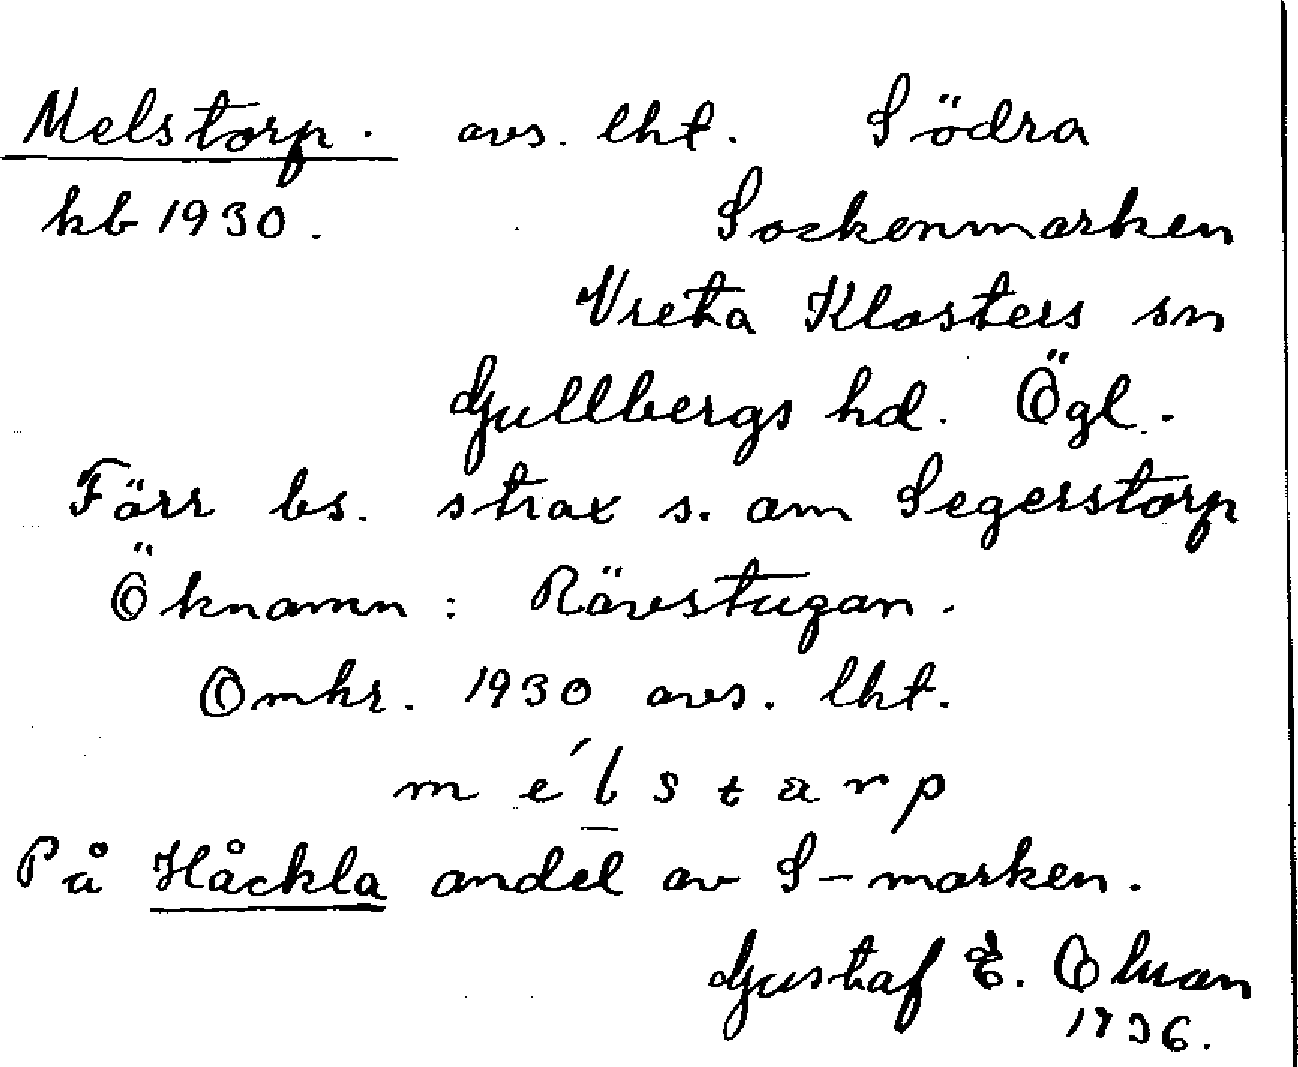 Melstorp. avs. lht. Södra
kb 1930. Sockenmarken
Vreta Klosters sn
Gullbergs hd. Ögl.
Förr bs. strax s. om Segerstorp
Öknamn: Rävstugan.
Omkr. 1930 avs. lht.
mélstarp
På Håckla andel av S-marken.
Gustaf E.
1936.